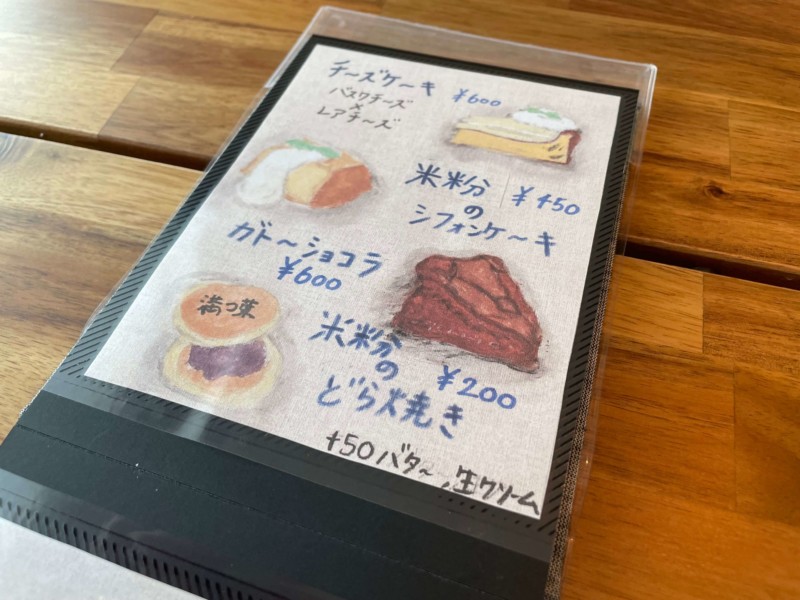 チーズケーキ ¥600
バスクチーズ
×
レアチーズ
米粉 ¥450
の
シフォンケーキ
ガトーショコラ
¥600
満つ葉
米粉
の ¥200
どら焼き
+50バター、生クリーム